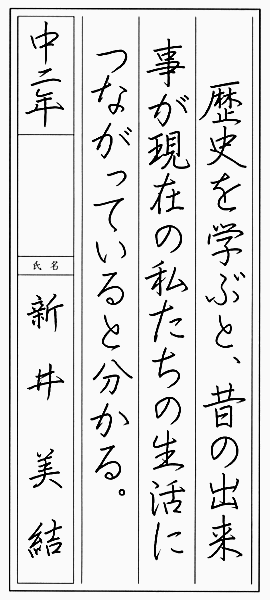 歴史を学ぶと、昔の出来
事が現在の私たちの生活に
つながっていると分かる。
中二年
氏名
新井美結